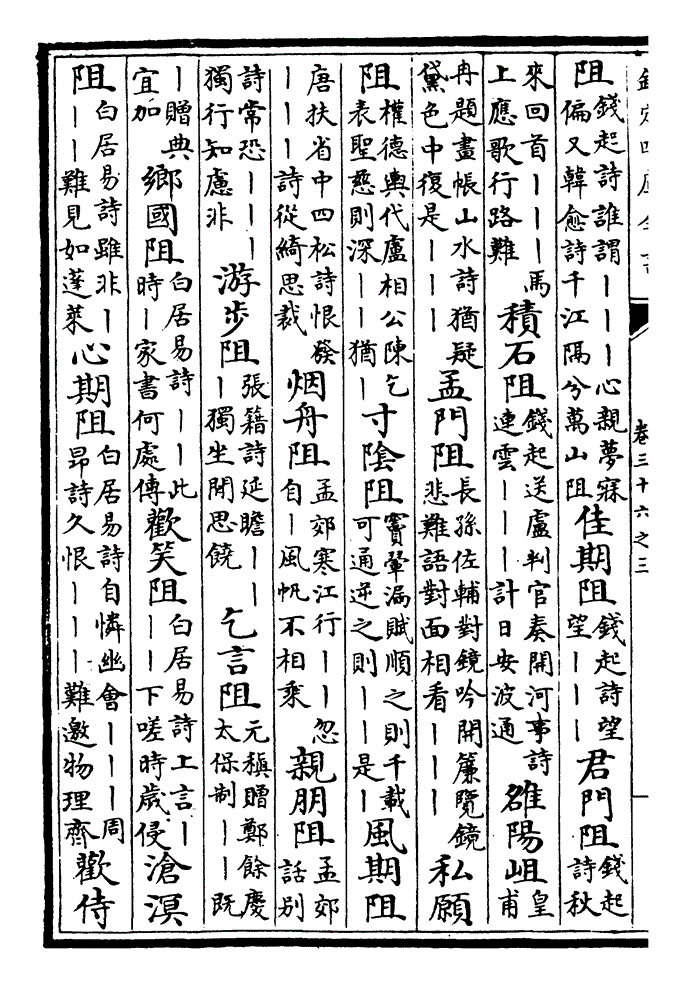 阻錢起詩誰謂丨丨丨心親夢寐偏又韓愈詩千江隔兮萬山阻佳期阻錢起詩望望丨丨丨君門阻錢起詩秋
來回首丨丨丨馬上應歌行路難積石阻錢起送盧判官奏開河事詩連雲丨丨丨計日安波通雒陽岨皇甫
冉題畫帳山水詩猶疑黛色中復是丨丨丨孟門阻長孫佐輔對鏡吟開簾覽鏡悲難語對面相看丨丨丨私願
阻權德輿代盧相公陳乞表聖慈則深丨丨猶丨寸陰阻竇鞏漏賦順之則千載可通逆之則丨丨是丨風期阻
唐扶省中四松詩恨發丨丨丨詩從綺思裁烟舟阻孟郊寒江行丨丨忽自丨風帆不相乘親朋阻孟郊話别
詩常恐丨丨丨獨行知慮非游步阻張籍詩延瞻丨丨丨獨坐閒思饒乞言阻元稹贈鄭餘慶太保制丨丨既
丨贈典宜加鄉國阻白居易詩丨丨此時丨家書何處傳歡笑阻白居易詩上言丨丨丨下嗟時歲侵滄溟
阻白居易詩雖非丨丨丨難見如蓬萊心期阻白居易詩自憐幽會丨丨丨周昂詩久恨丨丨丨難邀物理齊歡侍
卷三十六之三